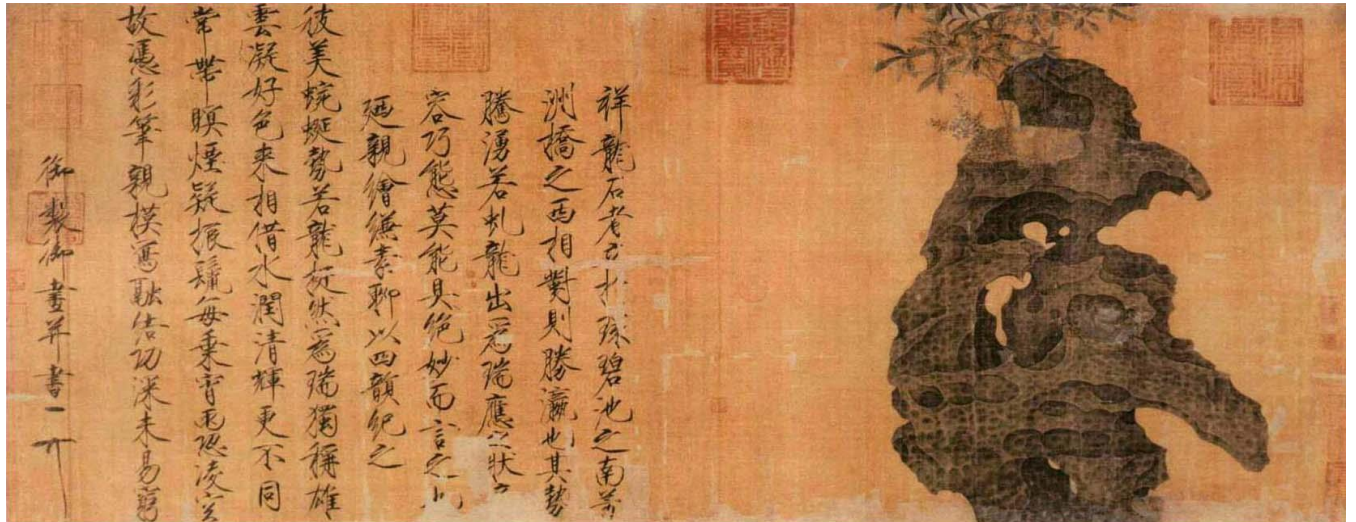 祥龍石者立於環碧池之南芳
洲橋之西相對則勝瀛也其勢
騰湧若虬龍出為瑞應之狀奇
容巧態莫能具絕妙而言之也
廼親繪縑素聊以四韻紀之
彼美蜿蜒勢若龍挺然為瑞獨稱雄
雲凝好色来相借水潤清輝更不同
常帶暝煙疑振鬣每乘宵雨恐凌空
故憑彩筆親模寫融結功深未易窮
御製御畫并書